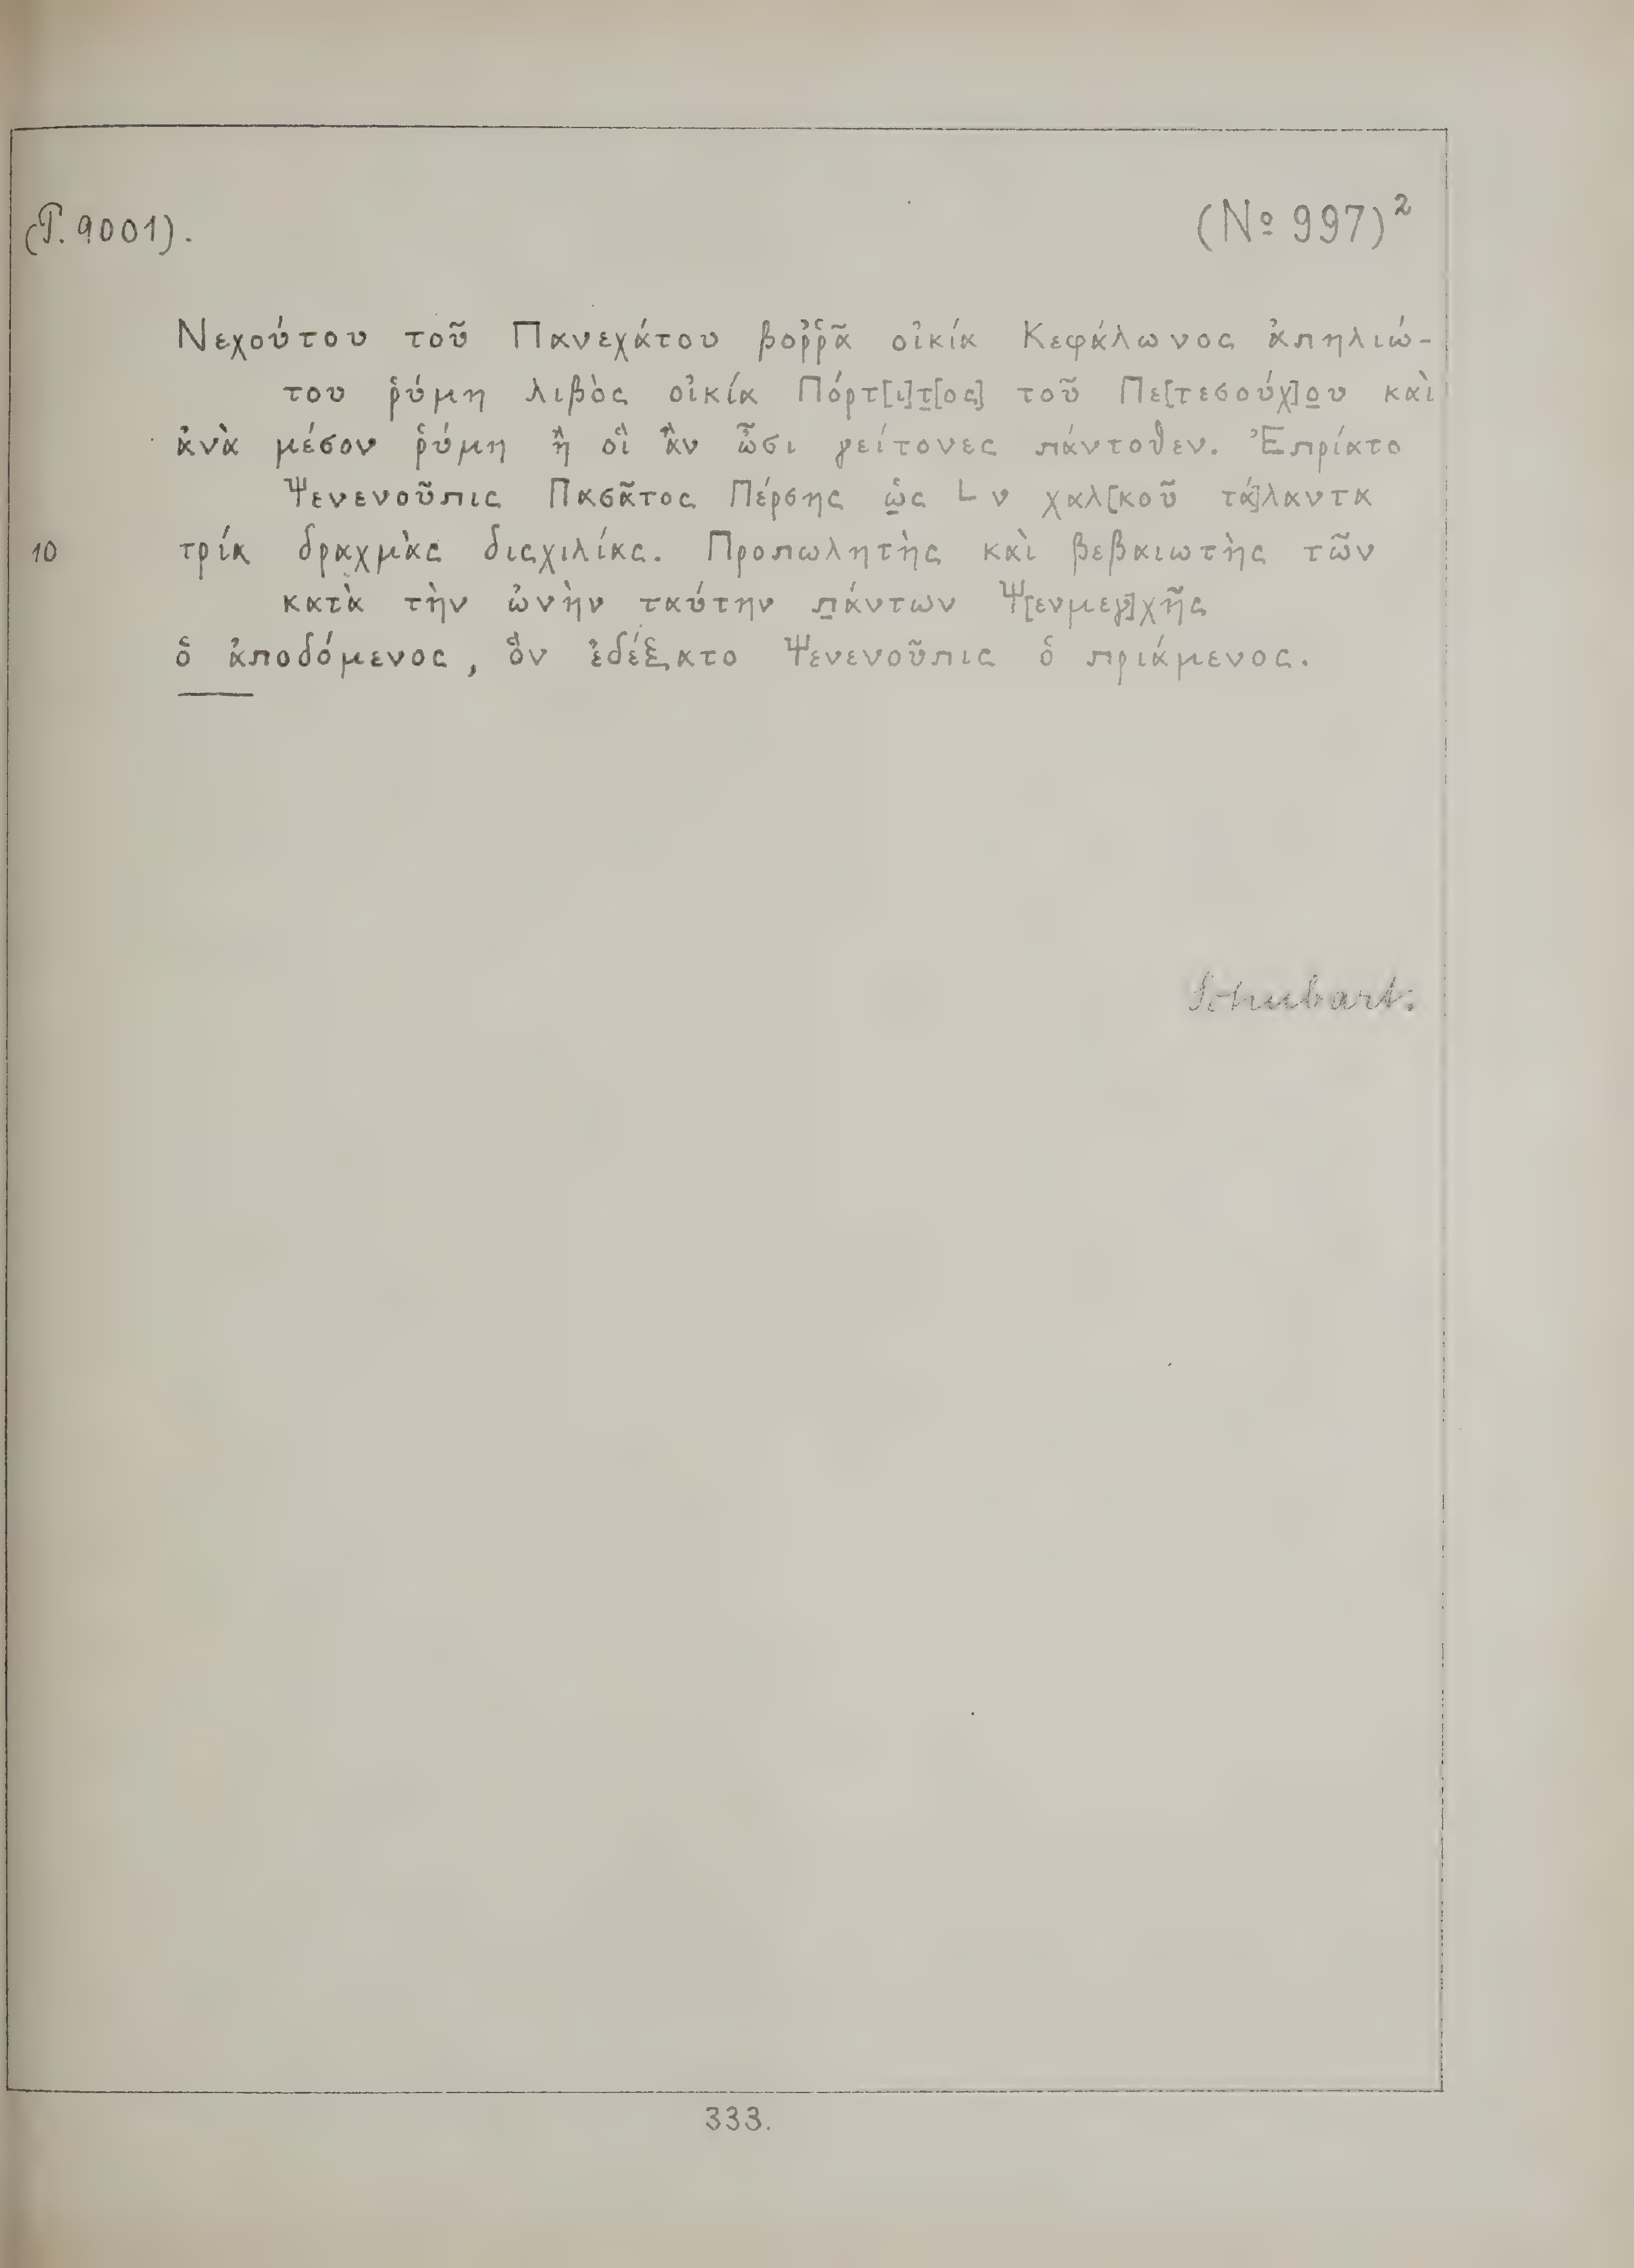 (P. 9001). (Nº 997)²
Νεχούτου τοῦ Πανεχάτου βοῤῥᾶ οἰκία Κεφάλωνος ἀπηλιώ-
του ῥύμη λιβὸς οἰκία Πόρτ[ι]τ̣[ος] τοῦ Πε[τεσούχ]ο̣υ καὶ
ἀνὰ μέσον ῥύμη ἢ οἳ ἂν ὦσι γείτονες πάντοθεν. Ἐπρίατο
Ψενενοῦπις Πασᾶτος Πέρσης ὡ̣ς L ν χαλ[κοῦ τά]λαντα
10 τρία δραχμὰς διςχιλίας. Προπωλητὴς καὶ βεβαιωτὴς τῶν
κατὰ τὴν ὠνὴν ταύτην π̣άντων Ψ[ενμεγ]χῆς
ὁ ἀποδόμενος, ὃν ἐδέξατο Ψενενοῦπις ὁ πριάμενος.
Schubart.
333.